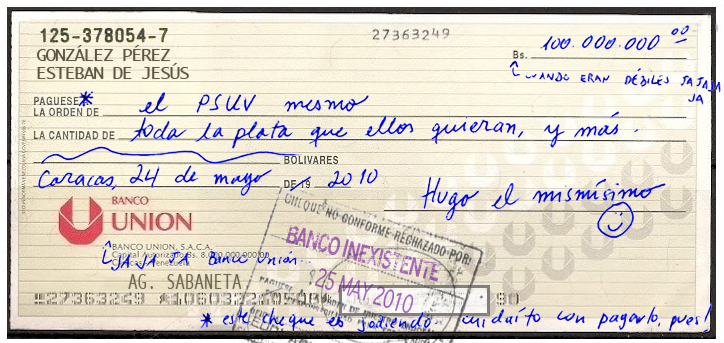 125-378054-7
27363249
GONZÁLEZ PÉREZ
ESTEBAN DE JESÚS
Bs. 100.000.000 00
CUANDO ERAN DÉBILES JAJAJA
JA
PAGUESE* el PSUV mesmo
LA ORDEN DE
LA CANTIDAD DE toda la plata que ellos quieran, y más.
BOLIVARES
Caracas, 24 de mayo DE 19 2010
Hugo el mismísimo
BANCO
UNION
CHEQUE NO CONFORME RECHAZADO POR:
BANCO INEXISTENTE
BANCO UNION, S.A.C.A.
Capital Autorizado Bs. 8.000.000.000,00
JA JA JA Banco Unión
25 MAY 2010
AG. SABANETA
27363249
90
* este cheque es jodiendo cuidaíto con pagarlo, pues!